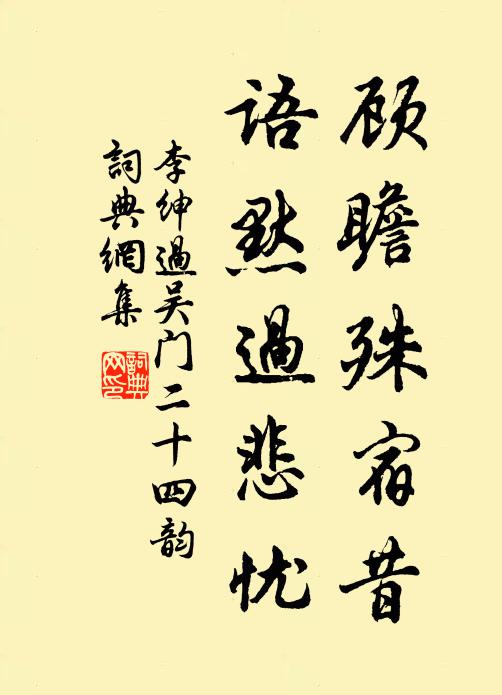 顾瞻殊宿昔
语默过悲忧
李绅過吴门二十四韵
詞典網集
詞典网印